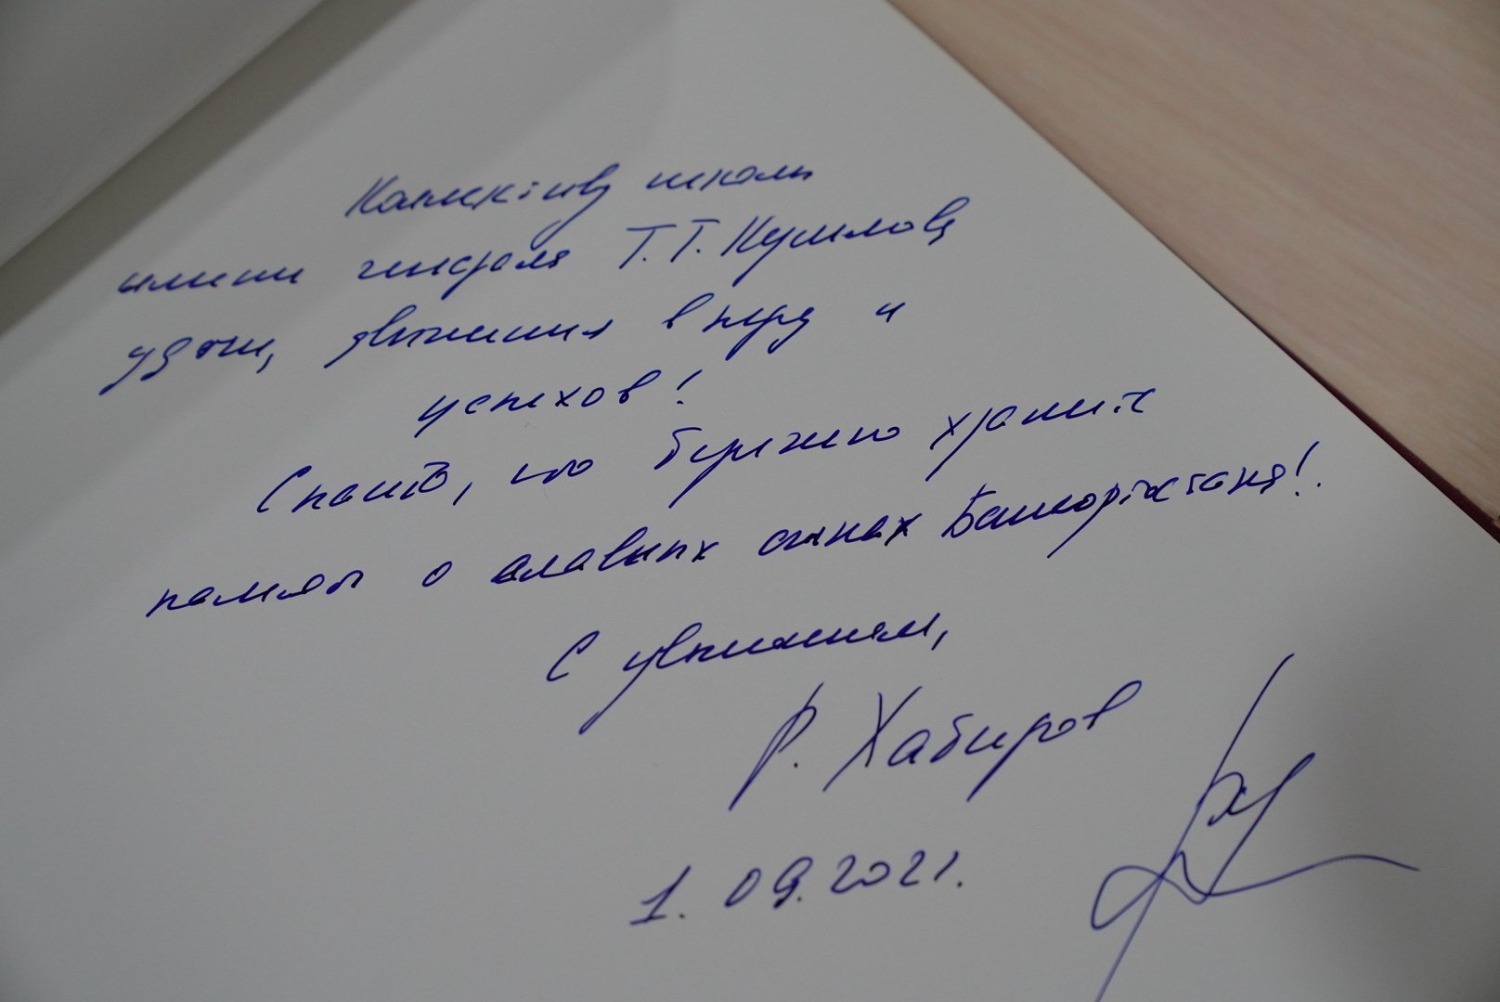 Коллективу школы
имени генерала Т.Т. Кусимова
удачи, движения вперед и
успехов!
Спасибо, что бережно храните
память о славных сынах Башкортостана!
С уважением,
Р. Хабиров
1.09.2021.